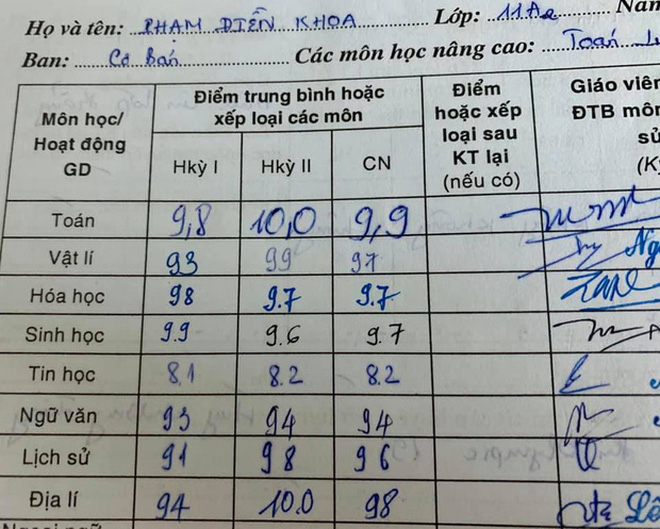 Họ và tên: PHAM ĐIỀN KHOA Lớp: 11A2
Ban: Cơ Bản Các môn học nâng cao: Toán
Môn học/ Hoạt động GD
Điểm trung bình hoặc xếp loại các môn
Hkỳ I Hkỳ II CN
Điểm hoặc xếp loại sau KT lại (nếu có)
Giáo viên
ĐTB môn
Toán 9,8 10,0 9,9
Vật lí 93 99 97
Hóa học 98 9.7 9.7
Sinh học 9.9 9.6 9.7
Tin học 8.1 8.2 8.2
Ngữ văn 93 94 94
Lịch sử 91 98 96
Địa lí 94 10.0 98